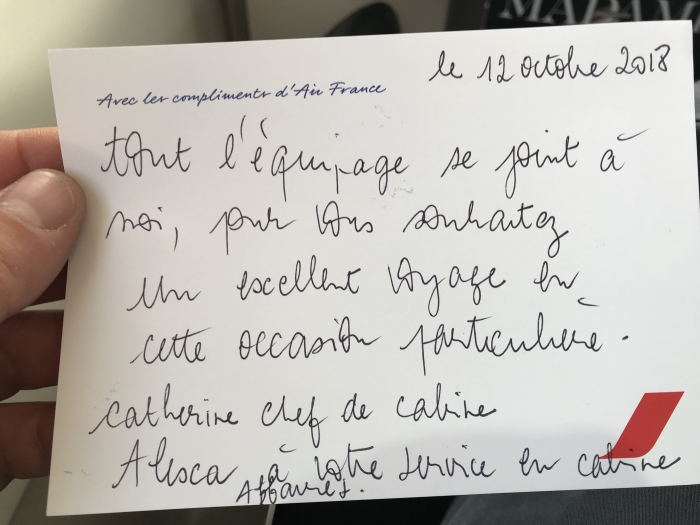 MADAME
le 12 octobre 2018
Avec les compliments d'Air France
tout l'équipage se joint à
moi, pour vous souhaitez
un excellent voyage en
cette occasion particulière.
Catherine chef de cabine
Alesca à votre service en cabine
Affaires.